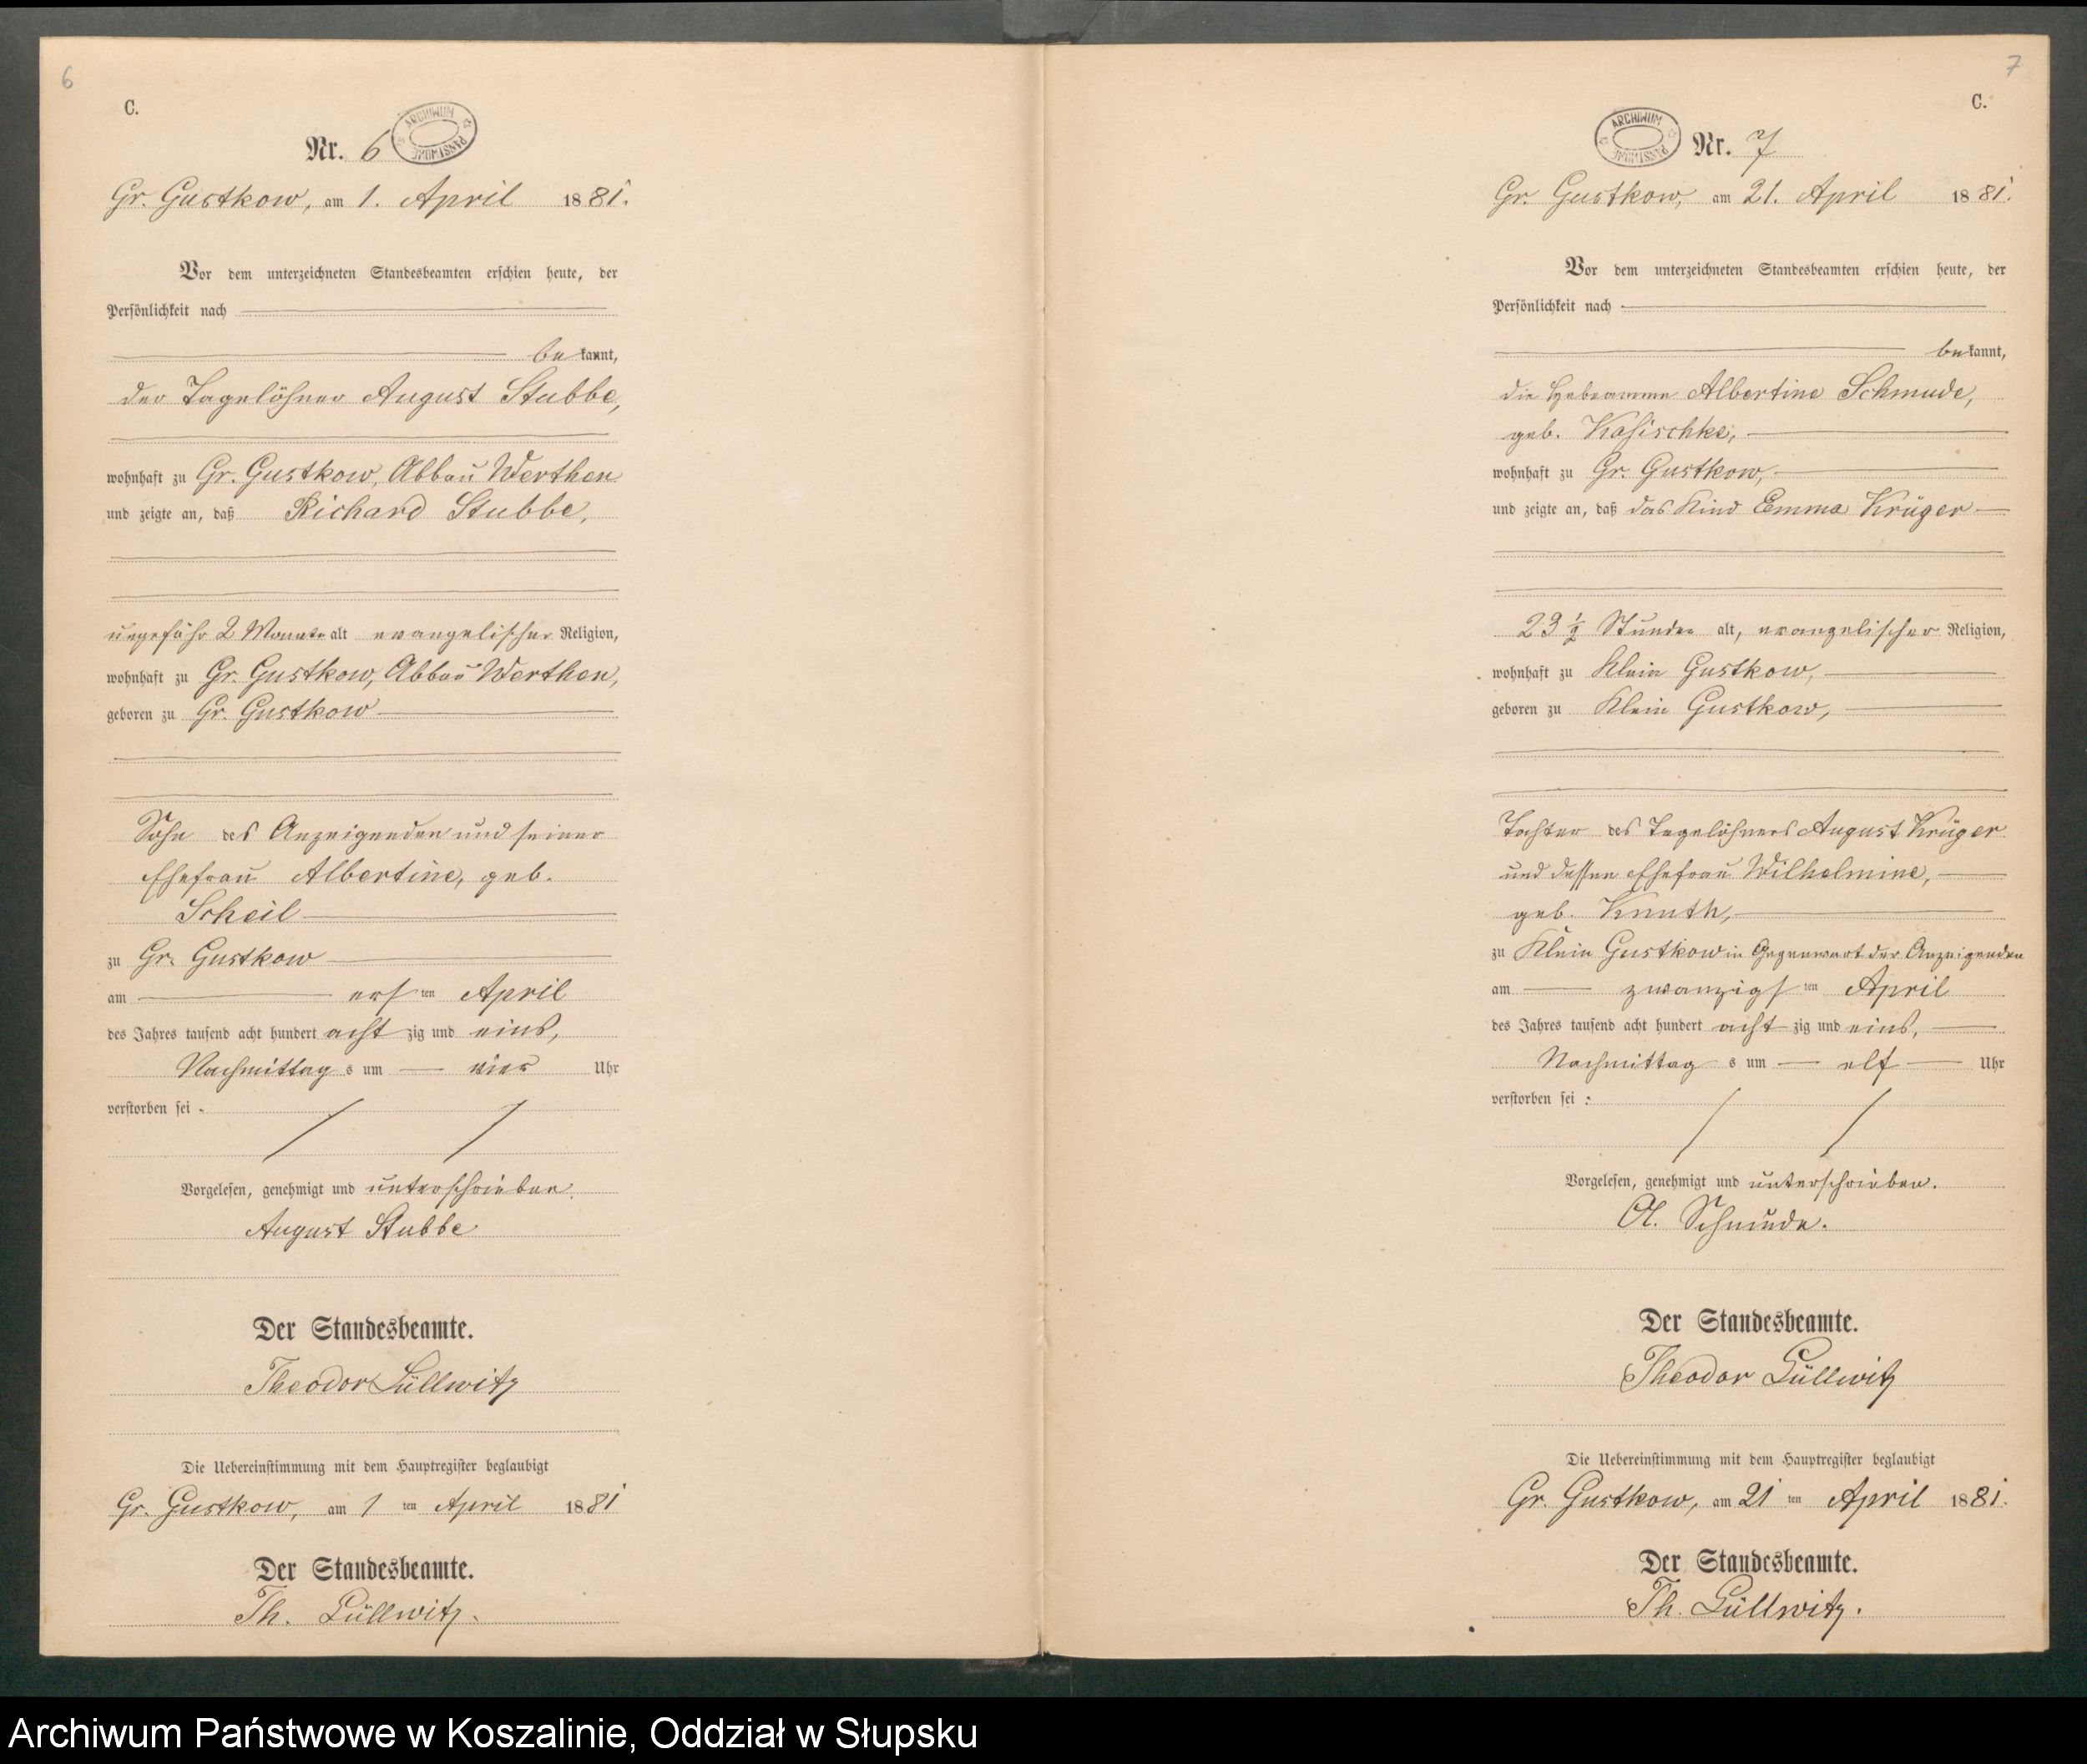 6
C.
Nr. 6
ARCHIWUM PAŃSTWOWE
Gr. Gustkow, am 1. April 1881.
Vor dem unterzeichneten Standesbeamten erschien heute, der
Persönlichkeit nach
bekannt,
der Tagelöhner August Stubbe,
wohnhaft zu Gr. Gustkow, Abbau Werthen
und zeigte an, daß Richard Stubbe,
ungefähr 2 Monate alt evangelischer Religion,
wohnhaft zu Gr. Gustkow, Abbau Werthen,
geboren zu Gr. Gustkow
Sohn des Anzeigenden und seiner
Ehefrau Albertine, geb.
Scheil
zu Gr. Gustkow
am ersten April
des Jahres tausend acht hundert achtzig und eins,
Nachmittags um vier Uhr
verstorben sei.
Vorgelesen, genehmigt und unterschrieben.
August Stubbe
Der Standesbeamte.
Theodor Lüllwitz
Die Uebereinstimmung mit dem Hauptregister beglaubigt
Gr. Gustkow, am 1ten April 1881
Der Standesbeamte.
Th. Lüllwitz.
7
C.
ARCHIWUM PAŃSTWOWE
Nr. 7
Gr. Gustkow, am 21. April 1881.
Vor dem unterzeichneten Standesbeamten erschien heute, der
Persönlichkeit nach
bekannt,
die Hebeamme Albertine Schmude,
geb. Kasischke,
wohnhaft zu Gr. Gustkow,
und zeigte an, daß das Kind Emma Krüger
23 1/2 Stunden alt, evangelischer Religion,
wohnhaft zu Klein Gustkow,
geboren zu Klein Gustkow,
Tochter des Tagelöhners August Krüger
und dessen Ehefrau Wilhelmine,
geb. Knuth,
zu Klein Gustkow in Gegenwart der Anzeigenden
am zwanzigsten April
des Jahres tausend acht hundert achtzig und eins,
Nachmittags um elf Uhr
verstorben sei.
Vorgelesen, genehmigt und unterschrieben.
A. Schmude.
Der Standesbeamte.
Theodor Lüllwitz
Die Uebereinstimmung mit dem Hauptregister beglaubigt
Gr. Gustkow, am 21ten April 1881.
Der Standesbeamte.
Th. Lüllwitz.
Archiwum Państwowe w Koszalinie, Oddział w Słupsku